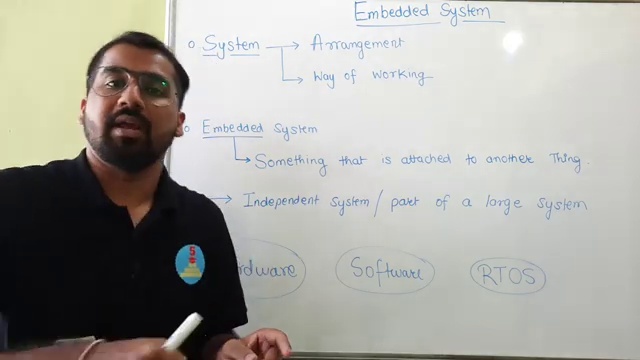 Embedded System
System → Arrangement
→ Way of working
Embedded System
→ Something that is attached to another Thing.
→ Independent system / part of a large system
rdware Software RTOS